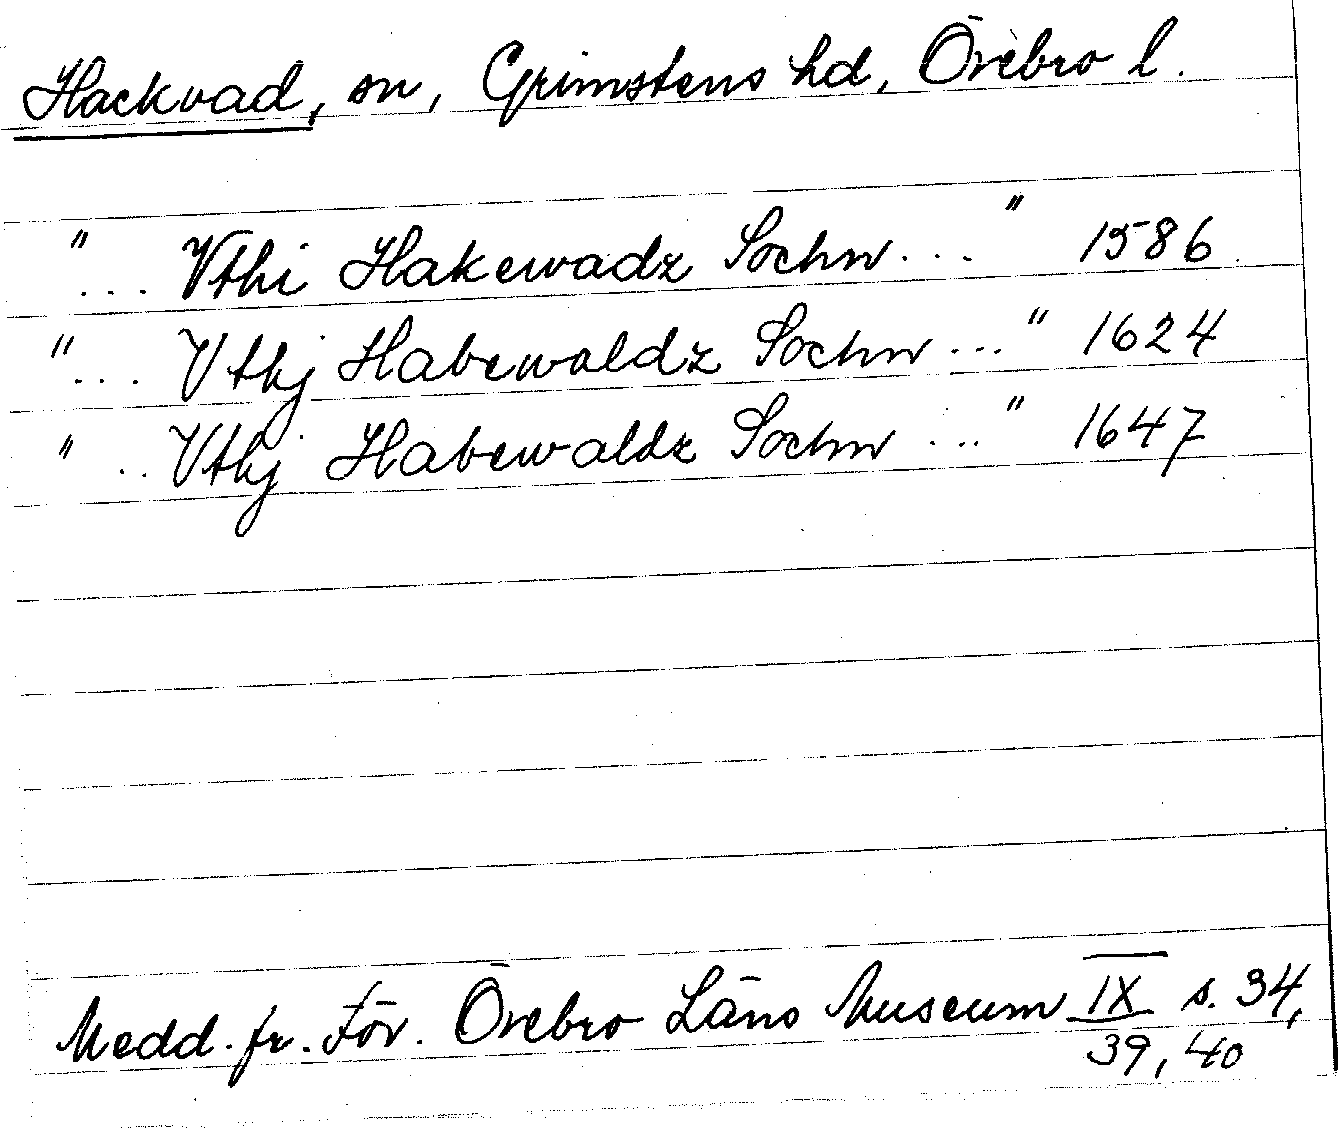 Hackvad, sn, Grimstens hd, Örebro l.
"... Vthi Hakewadz Sochn ..." 1586
"... Vthj Habewaldz Sochn ..." 1624
" .. Vthj Habewaldz Sochn ..." 1647
Medd. fr. För. Örebro Läns Museum IX s. 34,
39, 40